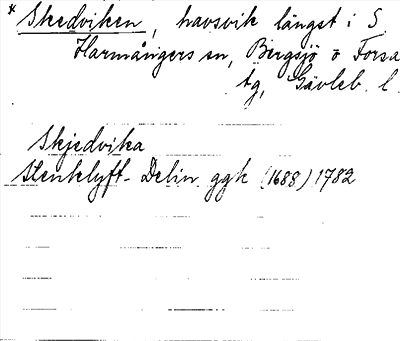 * Skedviken, havsvik längst i S
Harmångers sn, Bergsjö o Forsa
tg, Gävleb. l.
Skjedvika
Stenklyft- Delin. ggk (1688) 1782